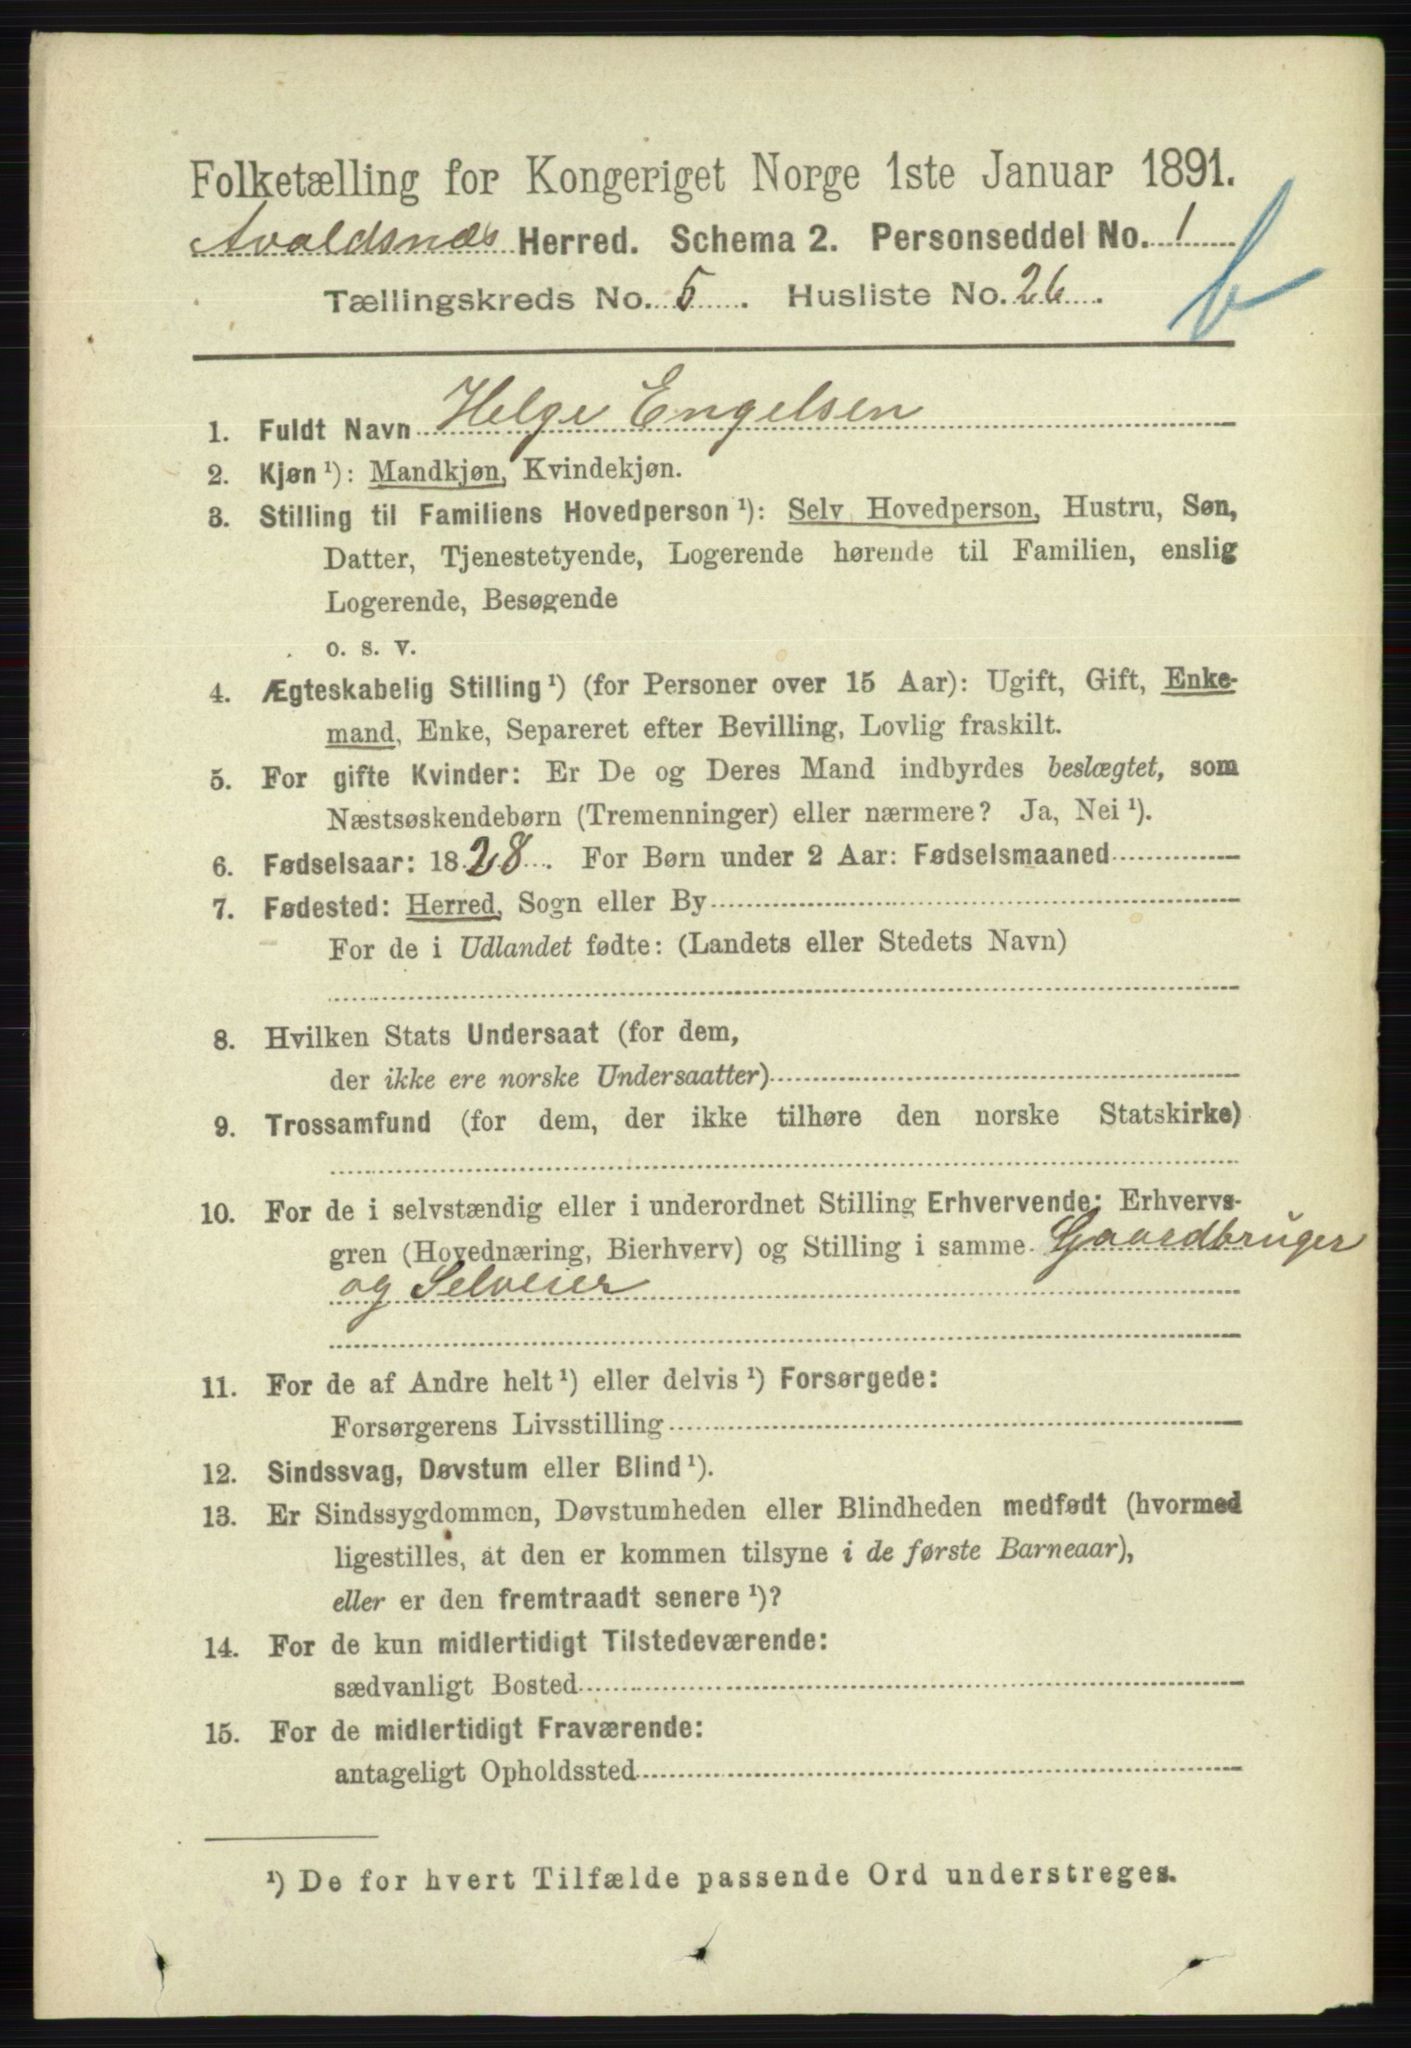 Folketælling for Kongeriget Norge 1ste Januar 1891.
Avaldsnæs Herred. Schema 2. Personseddel No. 1
Tællingskreds No. 5. Husliste No. 26.
b
1. Fuldt Navn Helge Engelsen
2. Kjøn ¹): Mandkjøn, Kvindekjøn.
3. Stilling til Familiens Hovedperson ¹): Selv Hovedperson, Hustru, Søn,
Datter, Tjenestetyende, Logerende hørende til Familien, enslig
Logerende, Besøgende
o. s. v.
4. Ægteskabelig Stilling ¹) (for Personer over 15 Aar): Ugift, Gift, Enke-
mand, Enke, Separeret efter Bevilling, Lovlig fraskilt.
5. For gifte Kvinder: Er De og Deres Mand indbyrdes beslægtet, som
Næstsøskendebørn (Tremenninger) eller nærmere? Ja, Nei ¹).
6. Fødselsaar: 1828. For Børn under 2 Aar: Fødselsmaaned
7. Fødested: Herred, Sogn eller By
For de i Udlandet fødte: (Landets eller Stedets Navn)
8. Hvilken Stats Undersaat (for dem,
der ikke ere norske Undersaatter)
9. Trossamfund (for dem, der ikke tilhøre den norske Statskirke)
10. For de i selvstændig eller i underordnet Stilling Erhvervende: Erhvervs-
gren (Hovednæring, Bierhverv) og Stilling i samme Gaardbruger
og Selveier
11. For de af Andre helt ¹) eller delvis ¹) Forsørgede:
Forsørgerens Livsstilling
12. Sindssvag, Døvstum eller Blind ¹).
13. Er Sindssygdommen, Døvstumheden eller Blindheden medfødt (hvormed
ligestilles, at den er kommen tilsyne i de første Barneaar),
eller er den fremtraadt senere ¹)?
14. For de kun midlertidigt Tilstedeværende:
sædvanligt Bosted
15. For de midlertidigt Fraværende:
antageligt Opholdssted
¹) De for hvert Tilfælde passende Ord understreges.